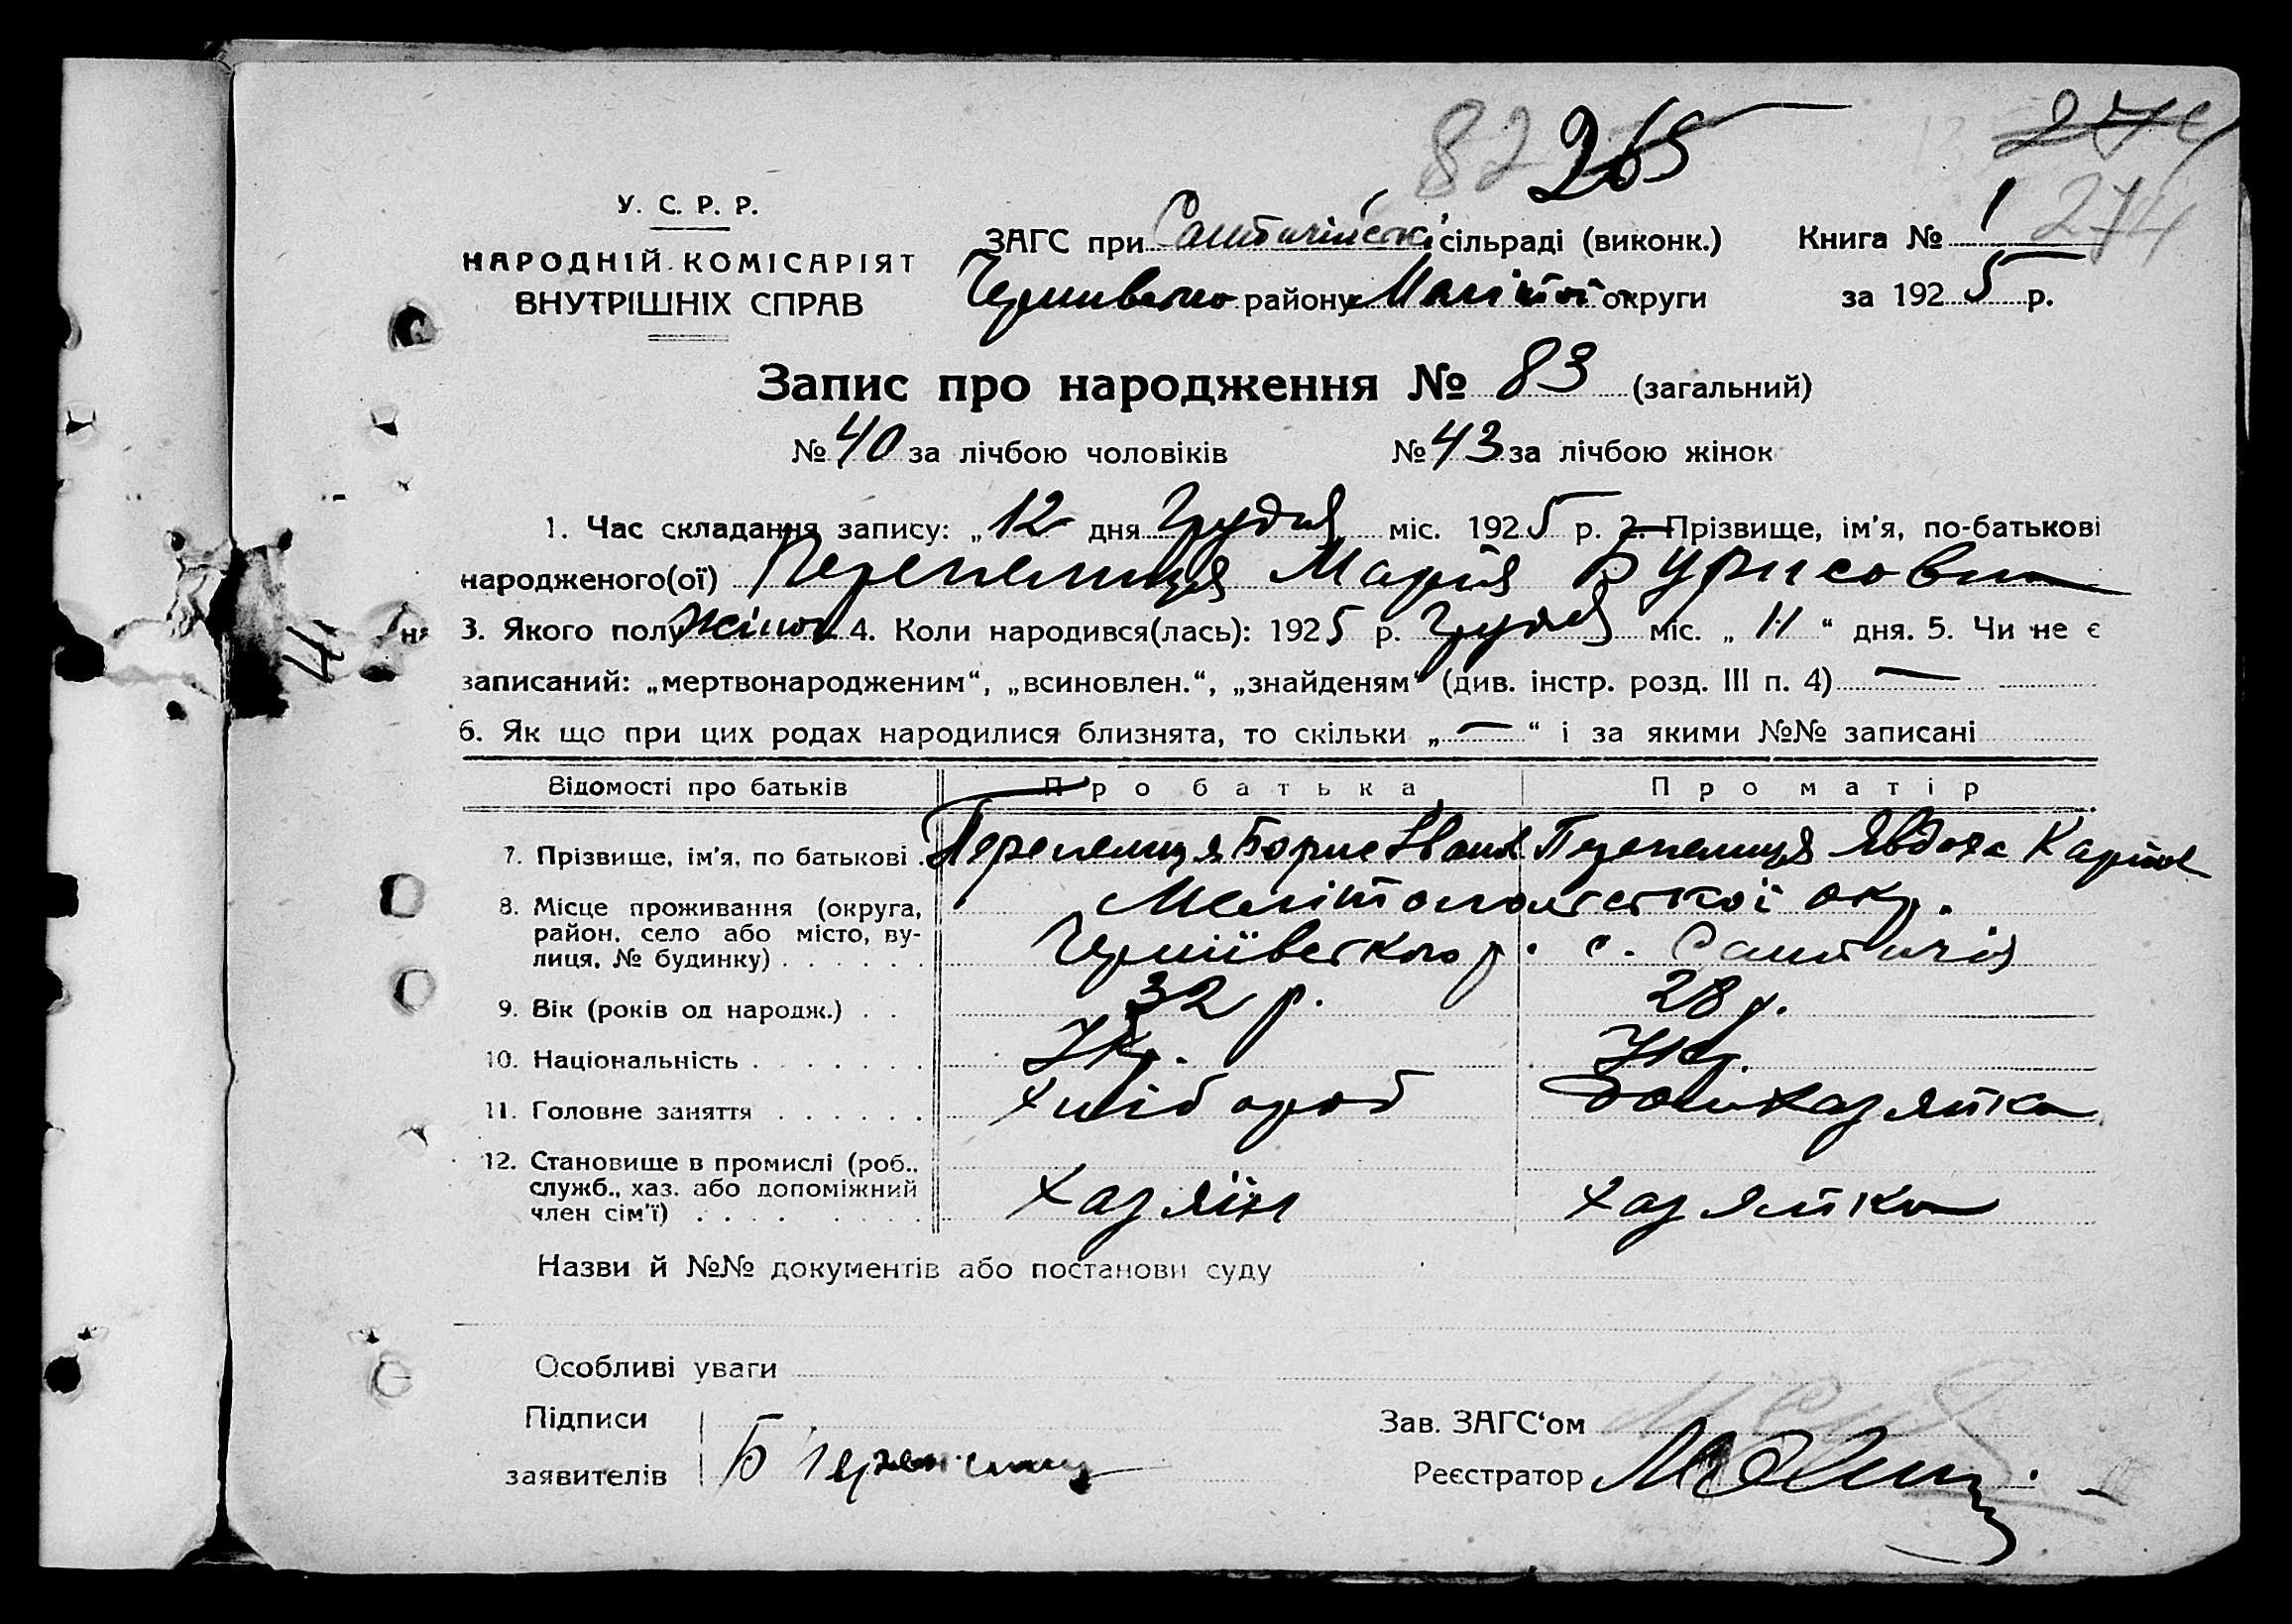 82 265 274
У. С. Р. Р.
НАРОДНІЙ КОМІСАРІЯТ
ВНУТРІШНІХ СПРАВ
ЗАГС при сільраді (виконк.) Книга № 1 274
району Меліт округи за 1925 р.
Запис про народження № 83 (загальний)
№ 40 за лічбою чоловіків № 43 за лічбою жінок
1. Час складання запису: „12 дня Грудня міс. 1925 р. 2. Прізвище, ім'я, по-батькові
народженого(ої) Перепелиця Марія
3. Якого полу жіноч 4. Коли народився(лась): 1925 р. Грудня міс. „11“ дня. 5. Чи не є
записаний: „мертвонародженим“, „всиновлен.“, „знайденям“ (див. інстр. розд. III п. 4) —
6. Як що при цих родах народилися близнята, то скільки „—“ і за якими №№ записані
Відомості про батьків Про батька Про матір
7. Прізвище, ім'я, по батькові . Перепелиця Борис Іван Перепелиця Явдоха Карпов
8. Місце проживання (округа, Мелітопольської окр.
район, село або місто, ву-
лиця, № будинку) . . . . . . Чернігівского р. с. Салтичія
9. Вік (років од народж.) . . 32 р. 28 р.
10. Національність . . . . . . . Укр. Укр.
11. Головне заняття . . . . . . Хлібороб Домохазяйка
12. Становище в промислі (роб.,
служб., хаз. або допоміжний
член сім'ї) . . . . . . . . Хазяїн Хазяйка
Назви й №№ документів або постанови суду
Особливі уваги
Підписи Зав. ЗАГС‘ом
заявителів Б Перепелиця Реєстратор